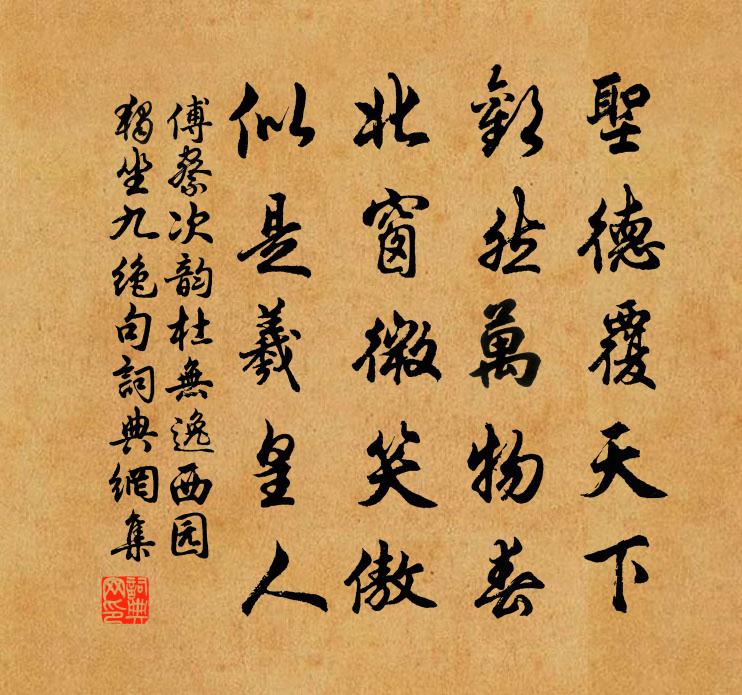 聖德覆天下
歡然萬物春
北窗微笑傲
似是羲皇人
傅察次韵杜無逸西园
獨坐九絶句詞典網集
詞典网印